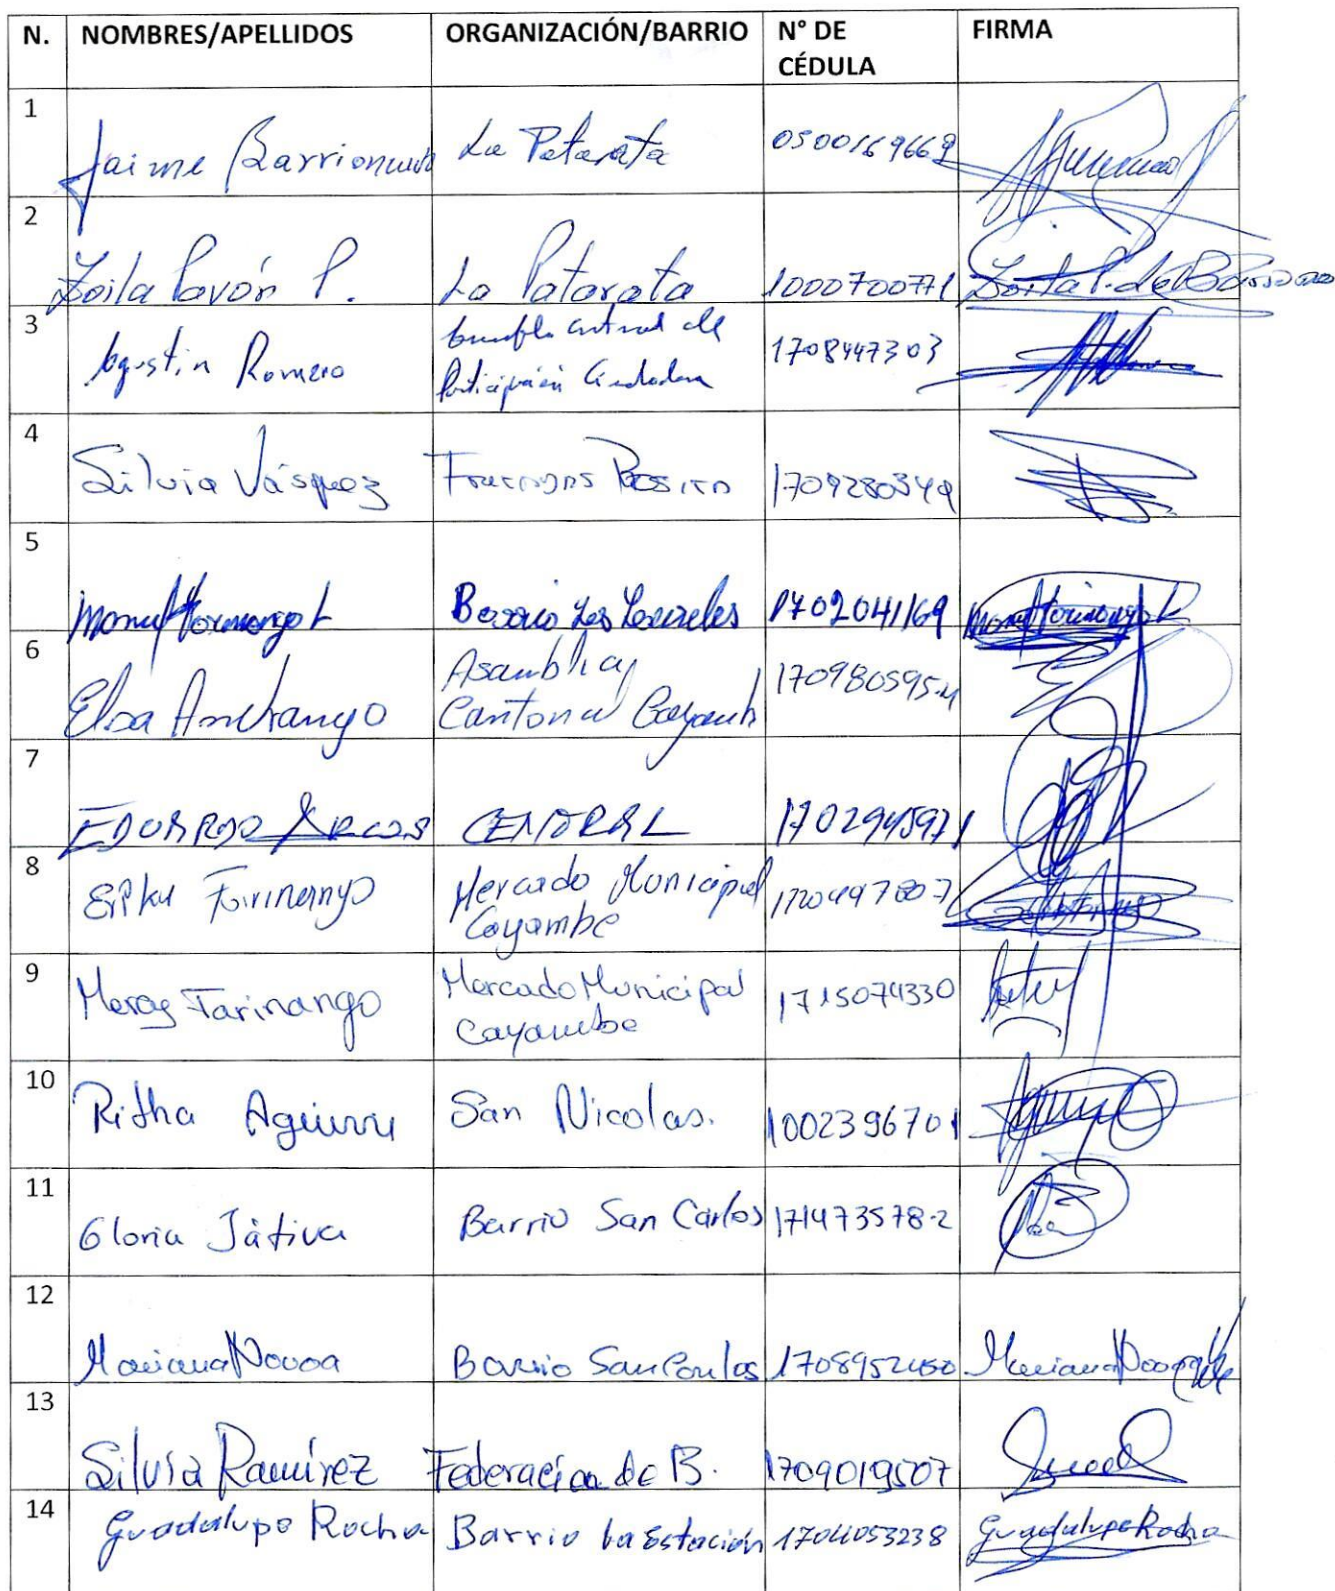 N. NOMBRES/APELLIDOS ORGANIZACIÓN/BARRIO N° DE CÉDULA FIRMA
1 Jaime Barrionuevo La Patarata 0500169669
2 Zoila Pavón P. La Patarata 1000700771 Zoila P. de Barrionuevo
3 Agustin Romero Asamblea cantonal de
Participación Ciudadana 1708447303
4 Silvia Vásquez 1709280349
5 Manuel Farinango L Barrio Los Laureles 1702041169 Manuel Farinango L
6 Elsa Anchango Asamblea
Cantonal Cayambe 170980595-4
7 EDUARDO ARCOS CENTRAL 1702945971
8 Erika Farinango Mercado Municipal
Cayambe 1720497807
9 Mercy Farinango Mercado Municipal
Cayambe 1715074330
10 Ritha Aguirre San Nicolas. 1002396701
11 Gloria Játiva Barrio San Carlos 171473578-2
12 Mariana Novoa Barrio San Carlos 1708952450 Mariana Novoa
13 Silvia Ramírez Federación de B. 1709019507
14 Guadalupe Rocha Barrio la Estación 1704053238 Guadalupe Rocha